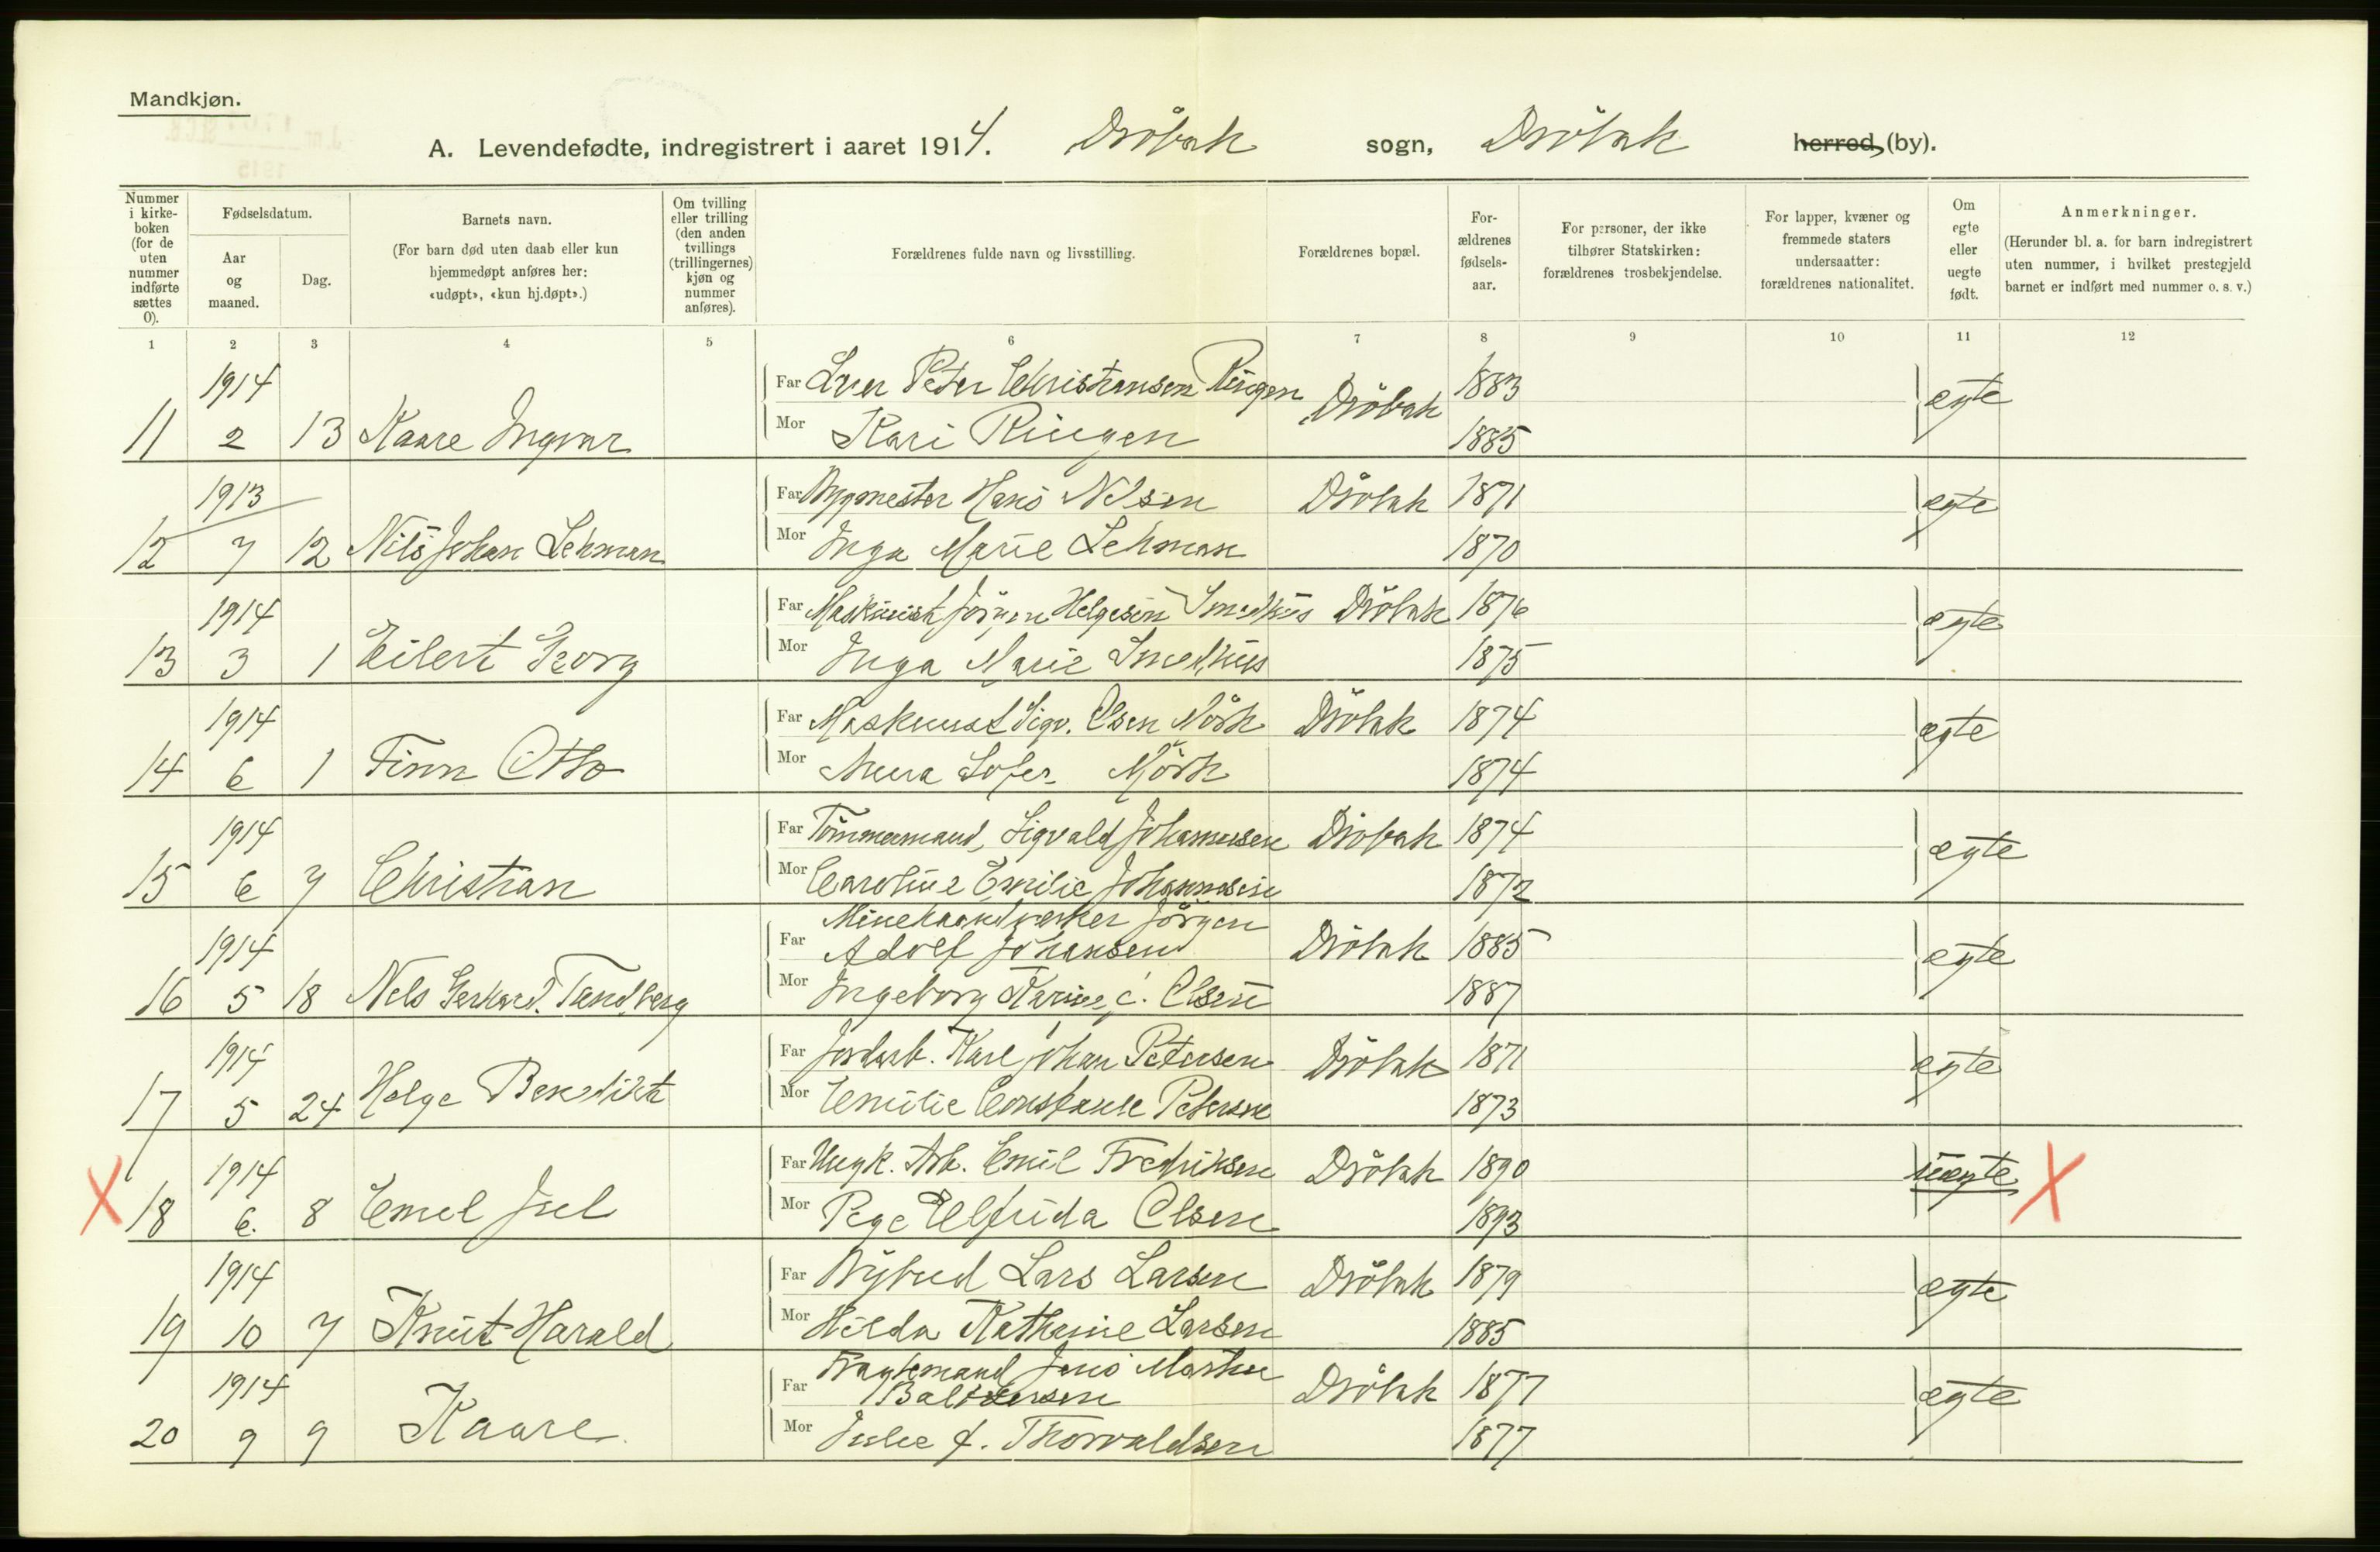 Mandkjøn.
A. Levendefødte, indregistrert i aaret 1914. Drøbak sogn, Drøbak herred, (by).
Nummer i kirke-boken (for de uten nummer indførte sættes 0).
Fødselsdatum.
Aar og maaned.
Dag.
Barnets navn.
(For barn død uten daab eller kun hjemmedøpt anføres her: «udøpt», «kun hj.døpt».)
Om tvilling eller trilling (den anden tvillings (trillingernes) kjøn og nummer anføres).
Forældrenes fulde navn og livsstilling.
Forældrenes bopæl.
For-ældrenes fødsels-aar.
For personer, der ikke tilhører Statskirken: forældrenes trosbekjendelse.
For lapper, kvæner og fremmede staters undersaatter: forældrenes nationalitet.
Om egte eller uegte født.
Anmerkninger.
(Herunder bl. a. for barn indregistrert uten nummer, i hvilket prestegjeld barnet er indført med nummer o. s. v.)
1 2 3 4 5 6 7 8 9 10 11 12
1914 Far Peter Christiansen Ringen Drøbak 1883 egte
11 2 13 Kaare Ingvar Mor Kari Ringen 1885
1913 Far Bygmester Hans Nilsen Drøbak 1871 egte
12 7 12 Nils Johan Lehman Mor Inga Marie Lehman 1870
1914 Far Maskinist Jörgen Helgesen Smedhus Drøbak 1876 egte
13 3 1 Eilert Georg Mor Inga Marie Smedhus 1875
1914 Far Maskinist Sigv. Olsen Mörk Drøbak 1874 egte
14 6 1 Finn Otto Mor Anna Mörk 1874
1914 Far Tömmermand, Sigvald Johannesen Drøbak 1874 egte
15 6 7 Christian Mor Caroline Emilie Johannesen 1872
Minehaandverker Jörgen
1914 Far Adolf Johansen Drøbak 1885 egte
16 5 18 Nils Gerhard Tandberg Mor Ingeborg Karine, Olsen 1887
1914 Far Jordarb. Karl Johan Petersen Drøbak 1871 egte
17 5 24 Helge Benedikt Mor Emilie Constanse Petersen 1873
1914 Far Ungk. Arb. Emil Fredriksen Drøbak 1890 uegte
18 6. 8 Emil Mor Elfrida Olsen 1893
1914 Far Bybud Lars Larsen Drøbak 1879 egte
19 10 7 Knut Harald Mor Hilda Kathrine Larsen 1885
Fragtemand Jens Martin
1914 Far Baltzersen Drøbak 1877 egte
20 9 9 Kaare Mor Thorvaldsen 1877